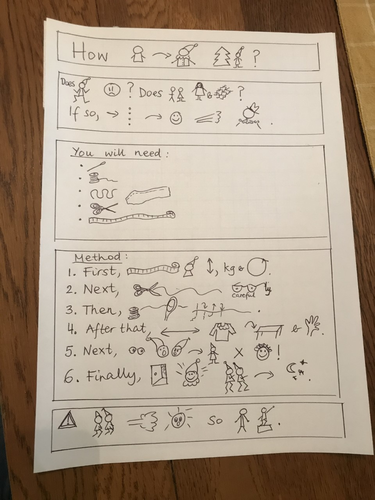 How ?
Does ? Does & ?
If so,
You will need:
Method:
1. First, , kg & .
2. Next, careful
3. Then, .
4. After that, & .
5. Next, x !
6. Finally, .
so .